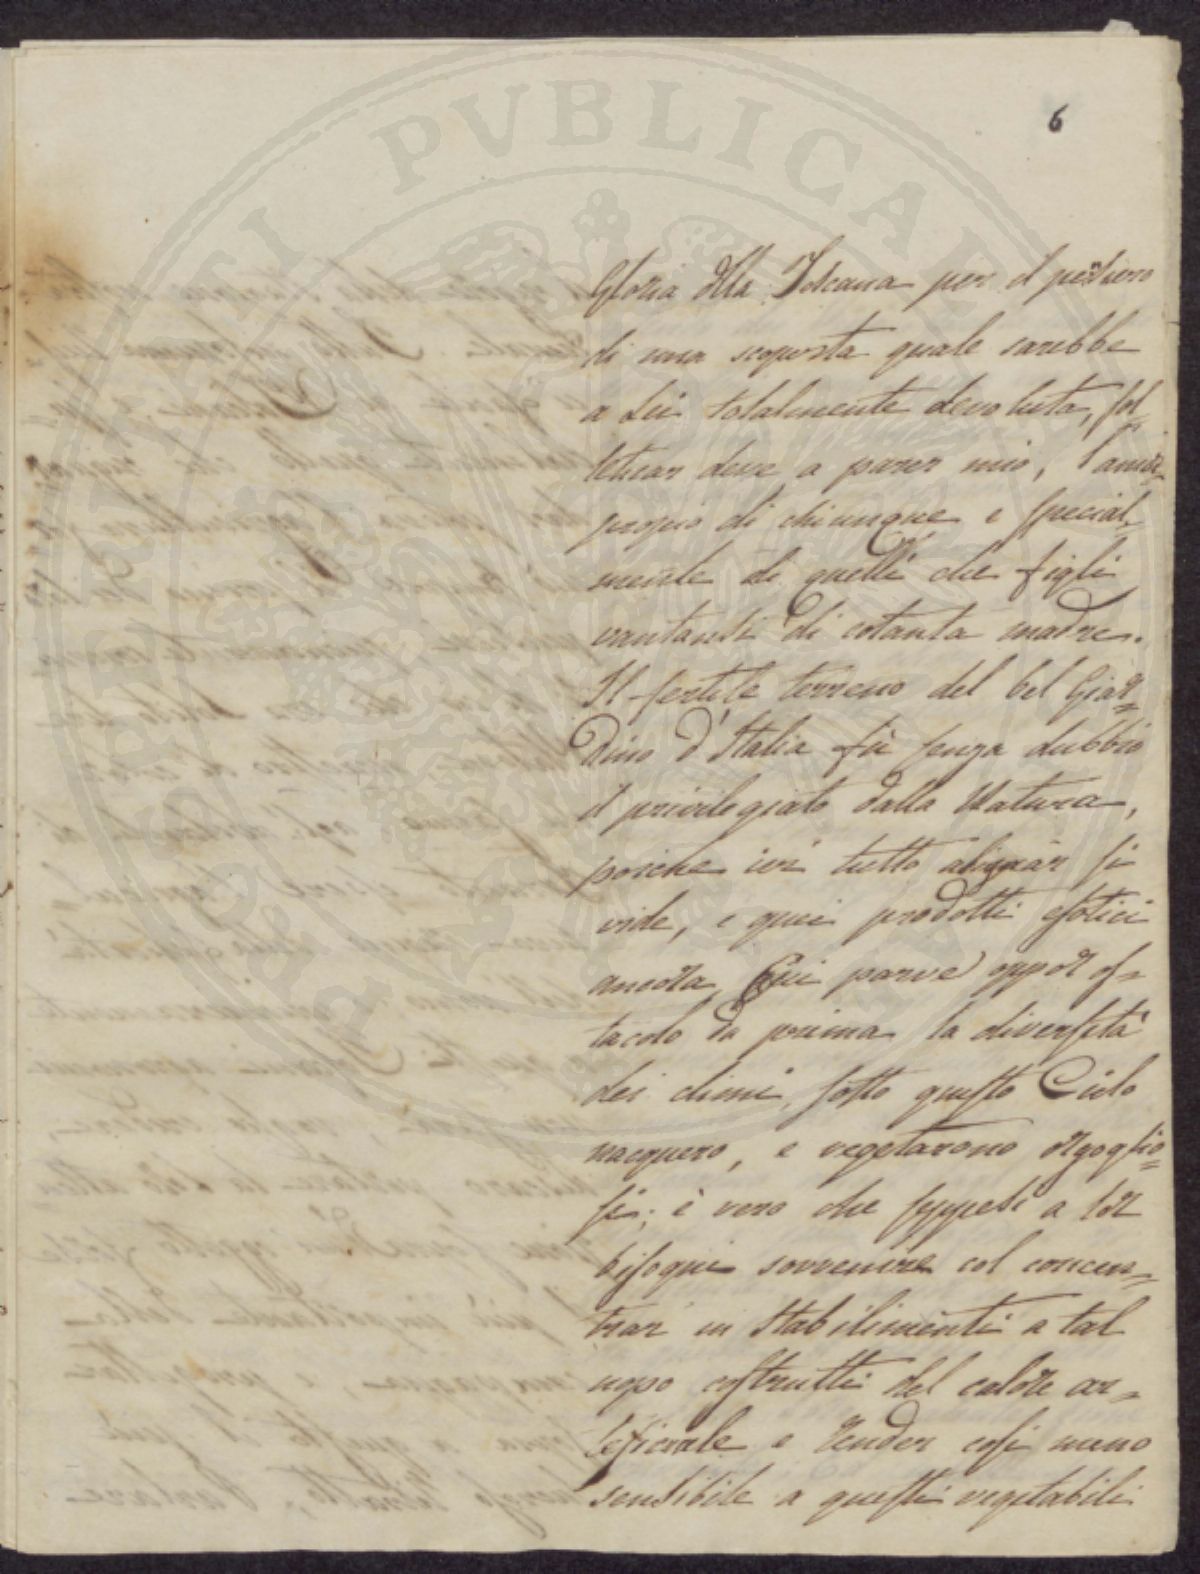 6
Gloria della Toscana per il pensiero
di una scoperta quale sarebbe
a Lei totalmente devoluta, sol=
leticar deve a parer mio, l'amor
proprio di chiunque e special=
mente di quelli che figli
vantansi di cotanta madre.
Il fertile terreno del bel Giar=
dino d'Italia fù senza dubbio
il privilegiato dalla Natura,
poiche ivi tutto alignàr si
vide, e quei prodotti esotici
ancora cui parve oppor os=
tacolo da prima la diversità
dei climi, sotto questo Cielo
nacquero, e vegetarono orgoglio=
si; è vero che seppesi a lor
bisogni sovvenire col concen=
trar in Stabilimenti a tal
uopo costrutti del calore ar=
teficiale e render così meno
sensibile a questi vegetabili